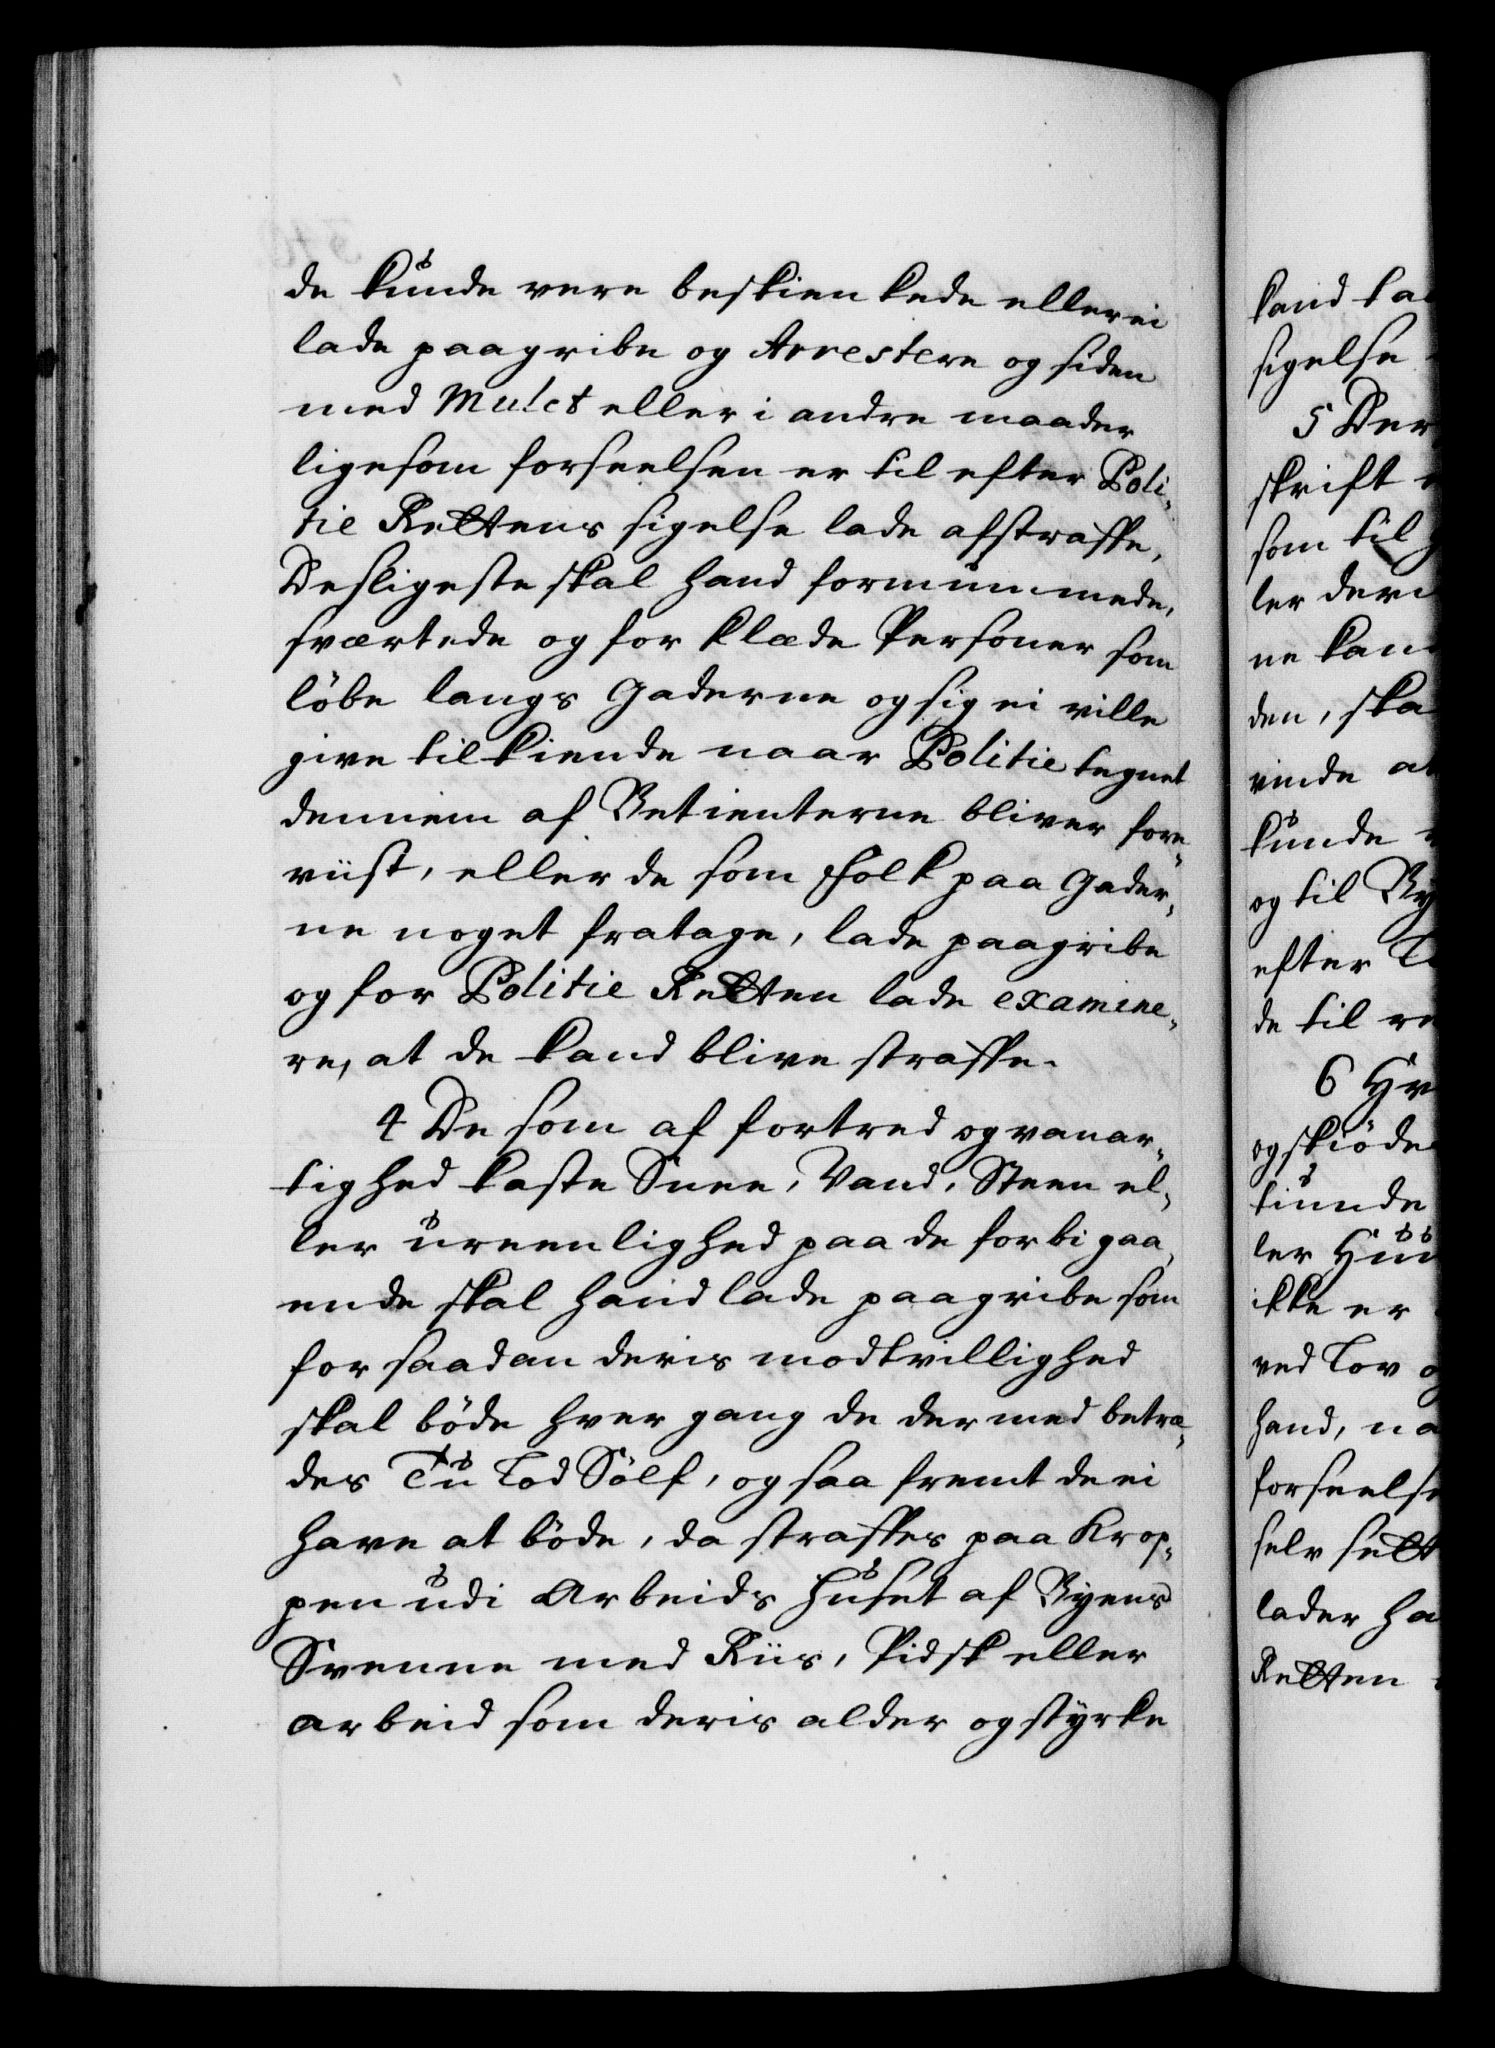 de kunde vere beskienkede eller ei
lade paagribe og Arrestere og siden
med Mulct eller i andre maader
ligesom forseelsen er til efter Poli-
tie Rettens sigelse lade afstraffe,
Desligeste skal hand formummede,
sværtede og forklæde Personer som
löbe langs Gaderne og sig ei ville
give tilkiende naar Politie tegnet
dennem af Betienterne bliver fore-
viist, eller de som Folk paa Gader-
ne noget fratage, lade paagribe
og for Politie Retten lade examine-
re, at de kand blive straffe.
4 De som af fortred og vanar-
tighed kaste Snee, Vand, Steen el-
ler ureenlighed paa de forbigaa-
ende skal hand lade paagribe som
for saadan deris modtvillighed
skal böde hver gang de dermed betræ-
des Tu Lod Sölf, og saa fremt de ei
have at böde, da straffes paa Krop-
pen udi Arbeids Huset af Byens
Svenne med Riis, Pidsk eller
arbeid som deris alder og styrke
kand
sigelse
5 Der
skrift
som til
ler
ne
den, ska
vinde
kunde
og til By
efter
de til
6 Hv
og skiöde
kunde
ler
ikke er
ved Lov
hand, na
forseelse
selv sett
lader ha
Retten